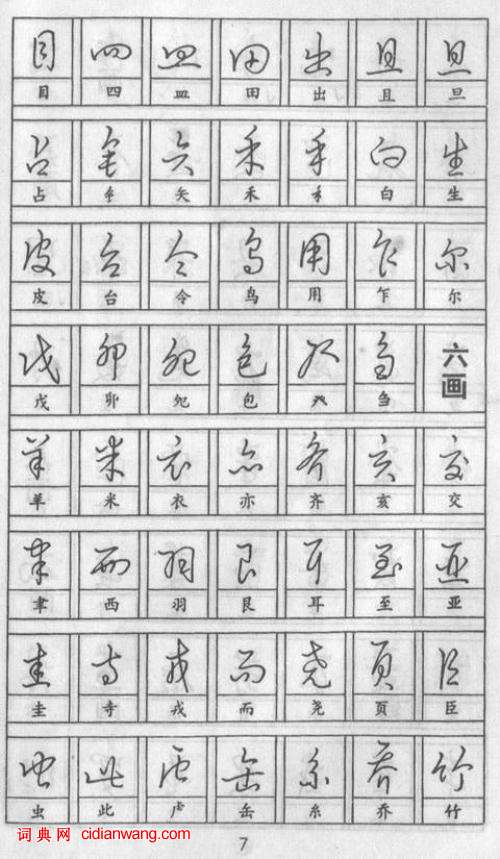 目 四 皿 田 出 且 旦
目 四 皿 田 出 且 旦
占 钅 矢 禾 手 白 生
占 钅 矢 禾 白 生
皮 台 令 鸟 用 乍 尔
皮 台 令 鸟 用 乍 尔
戊 卯 包 刍 六画
戊 卯 包 刍
羊 米 衣 亦 齐 亥 交
羊 米 衣 亦 齐 亥 交
聿 西 羽 艮 耳 至 亚
聿 西 羽 艮 耳 至 亚
圭 寺 戎 而 尧 页 臣
圭 寺 戎 而 尧 页 臣
虫 此 虍 缶 糸 乔 竹
虫 此 虍 缶 糸 乔 竹
词典网 cidianwang.com
7